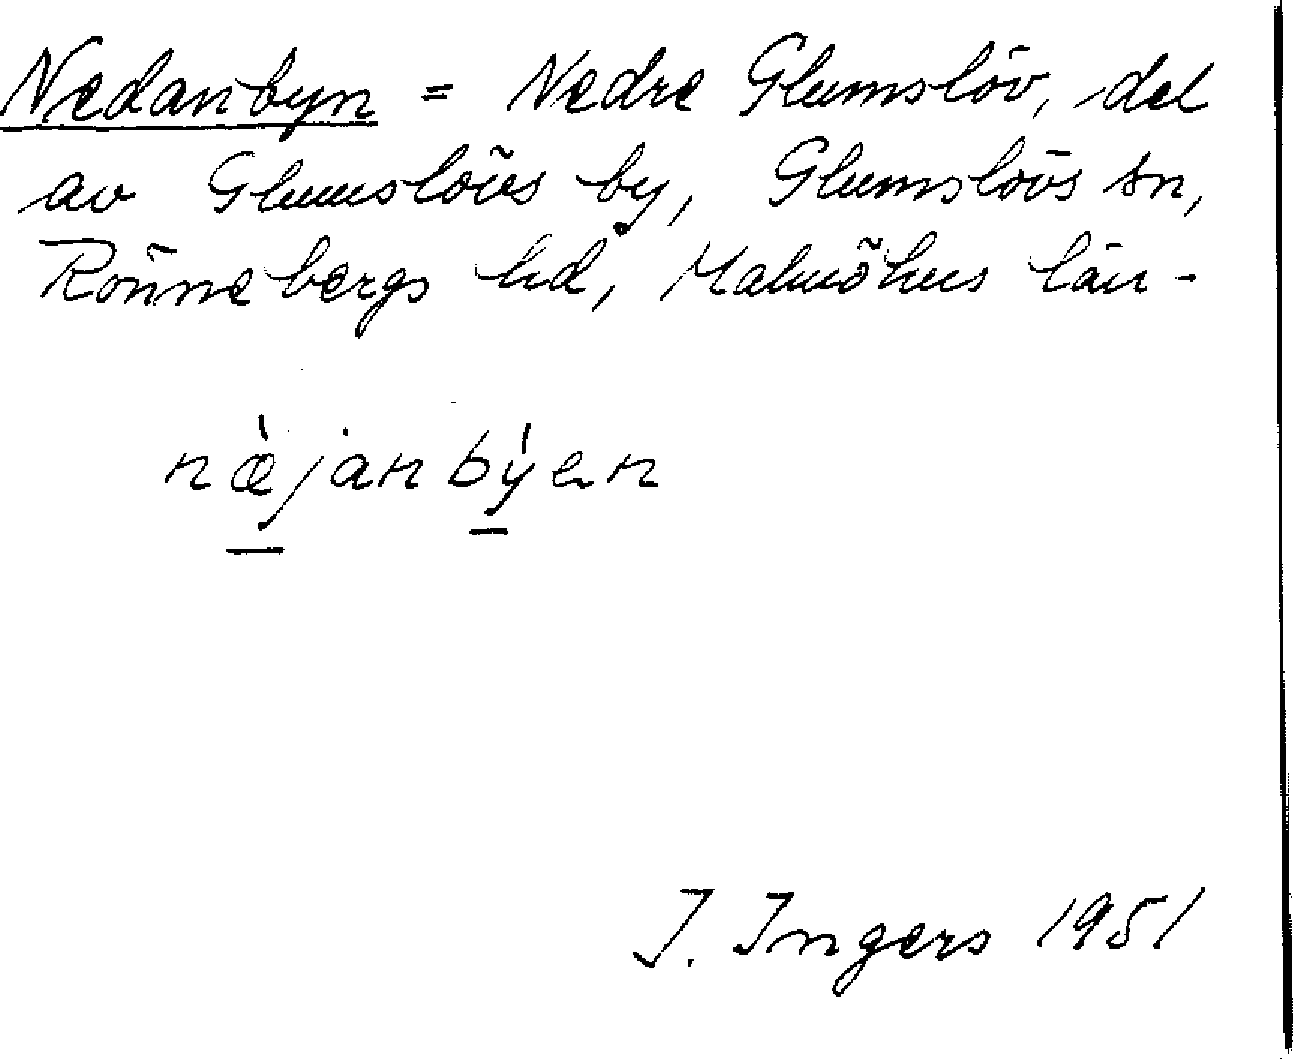 Nedanbyn = Nedre Glumslöv, del
av Glumslövs by, Glumslövs sn,
Rönnebergs hd, Malmöhus län.
næ̀janbýen
I. Ingers 1951